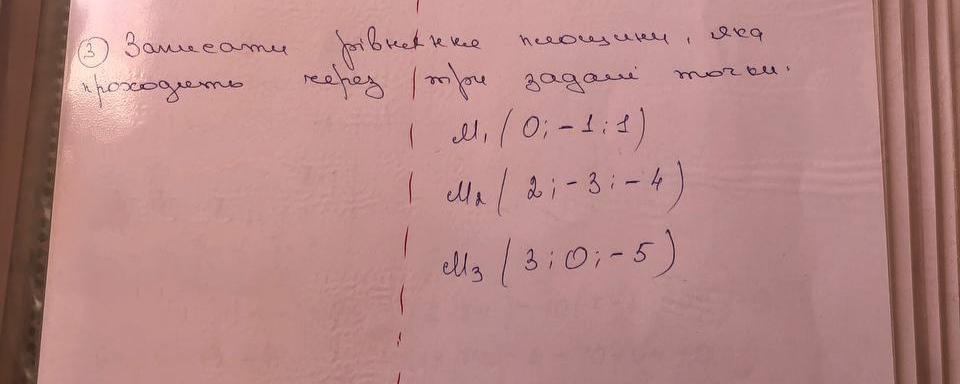 3 Записати рівняння площини, яка
проходить через три задані точки.
M₁ (0; -1; 1)
M₂ (2; -3; -4)
M₃ (3; 0; -5)